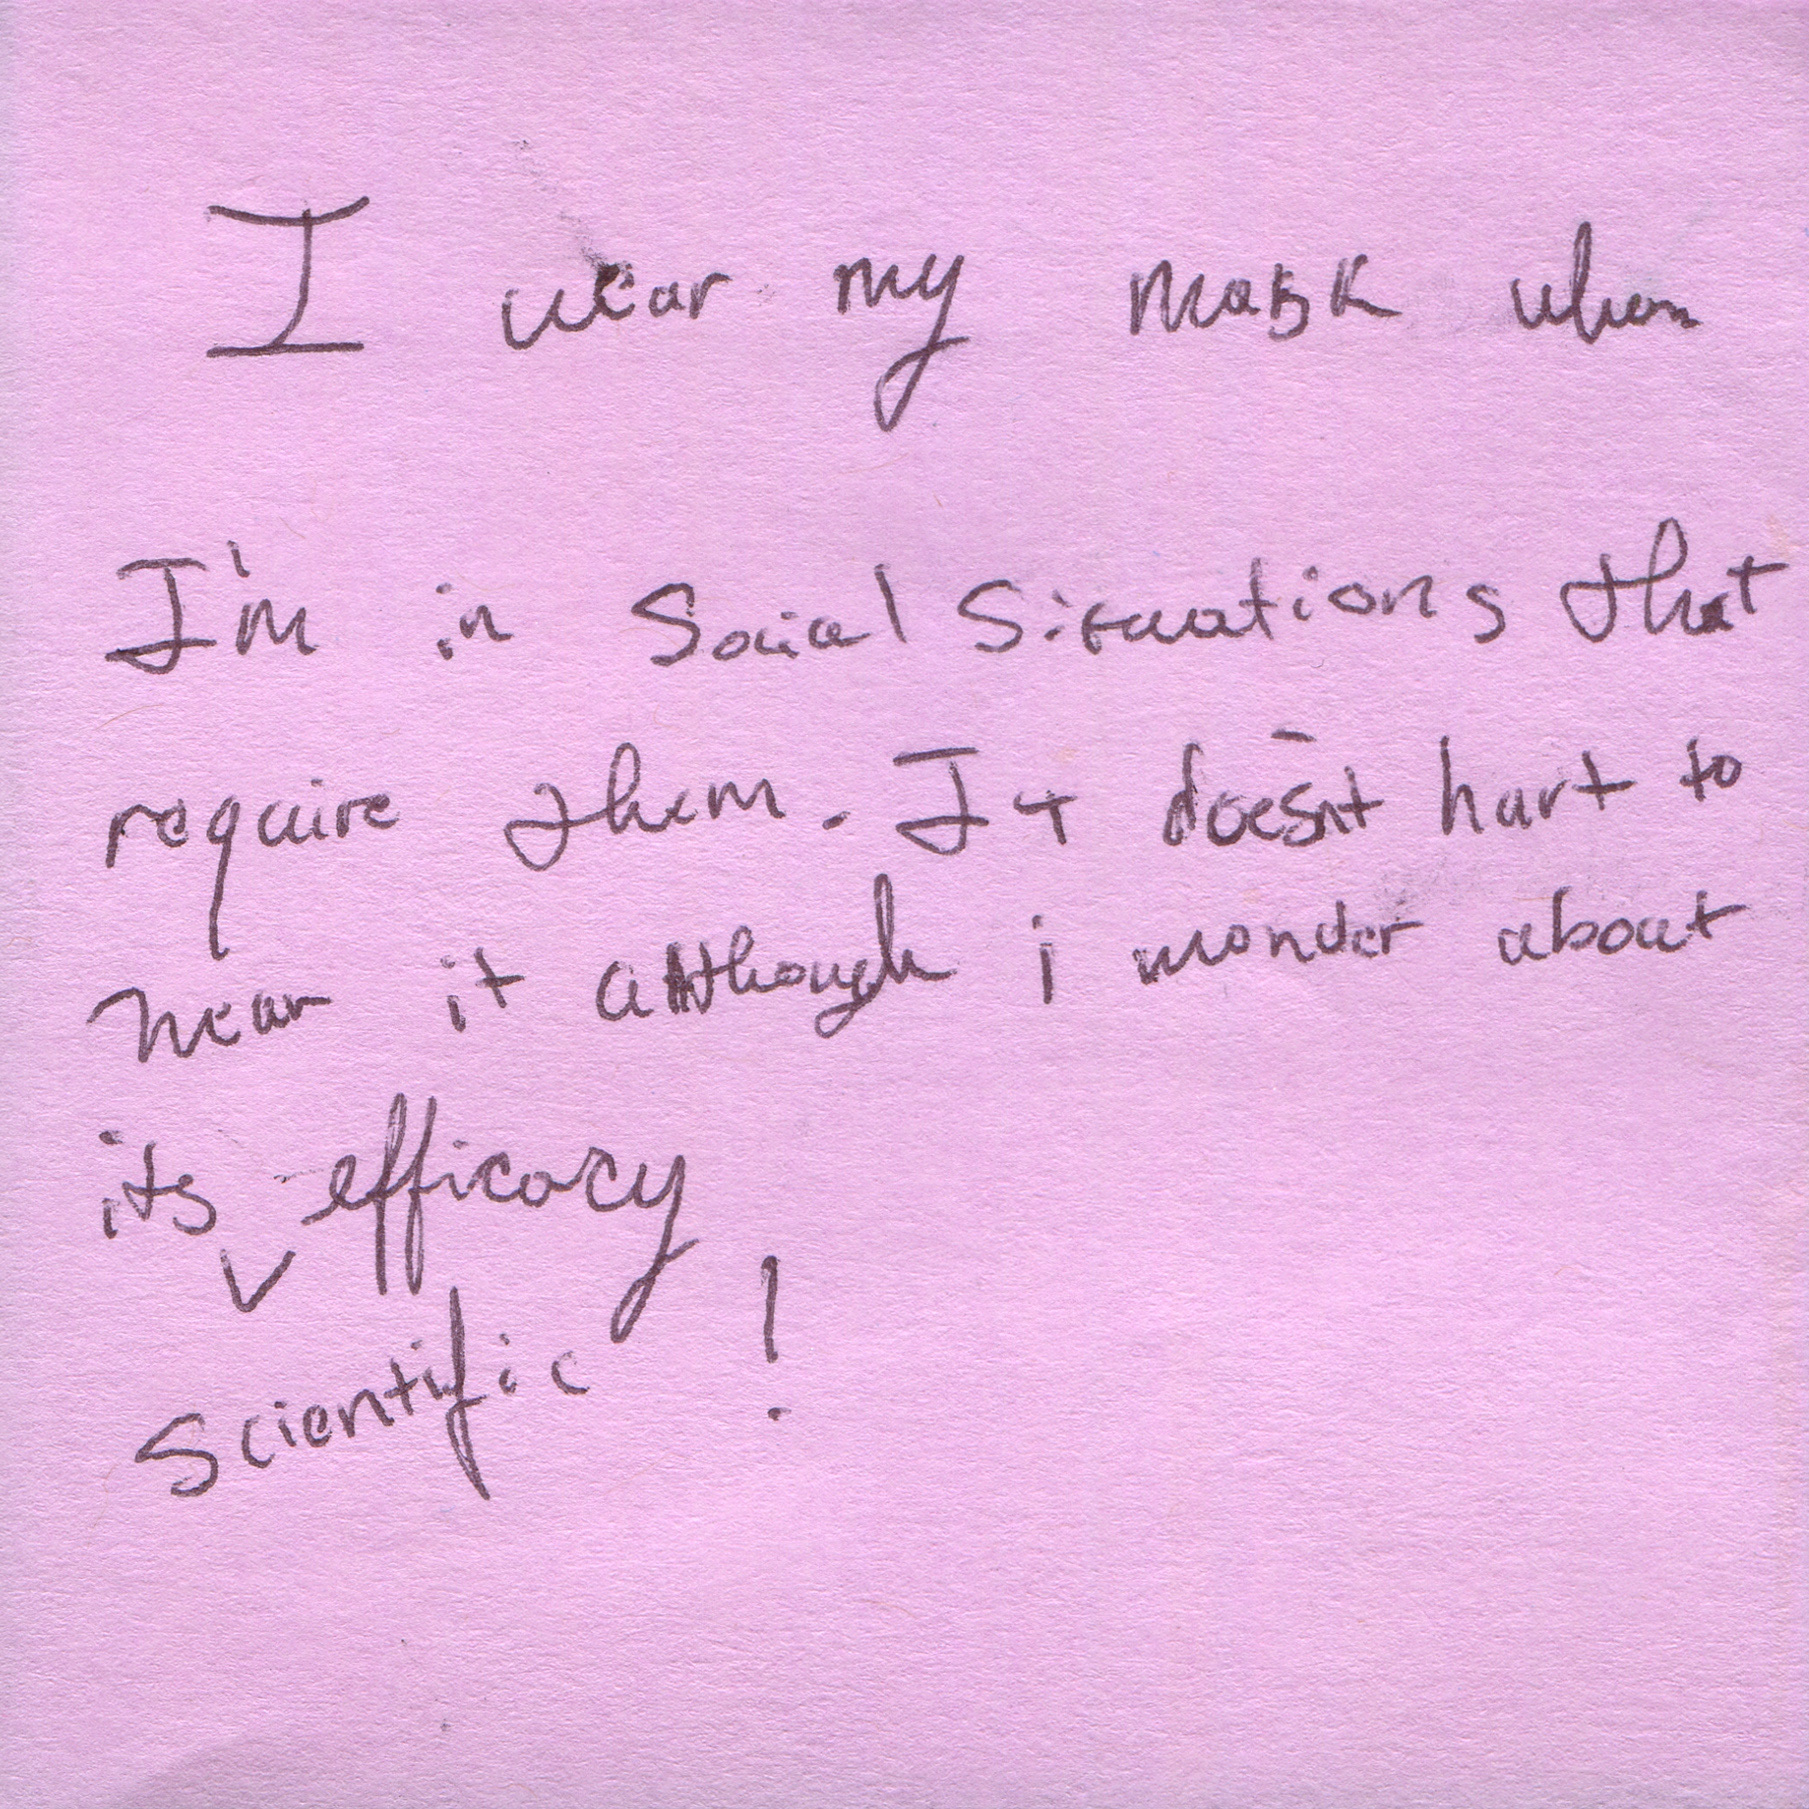 I wear my mask when
I'm in Social Situations that
require them. It doesn't hurt to
wear it although i wonder about
its efficacy
V
Scientific !